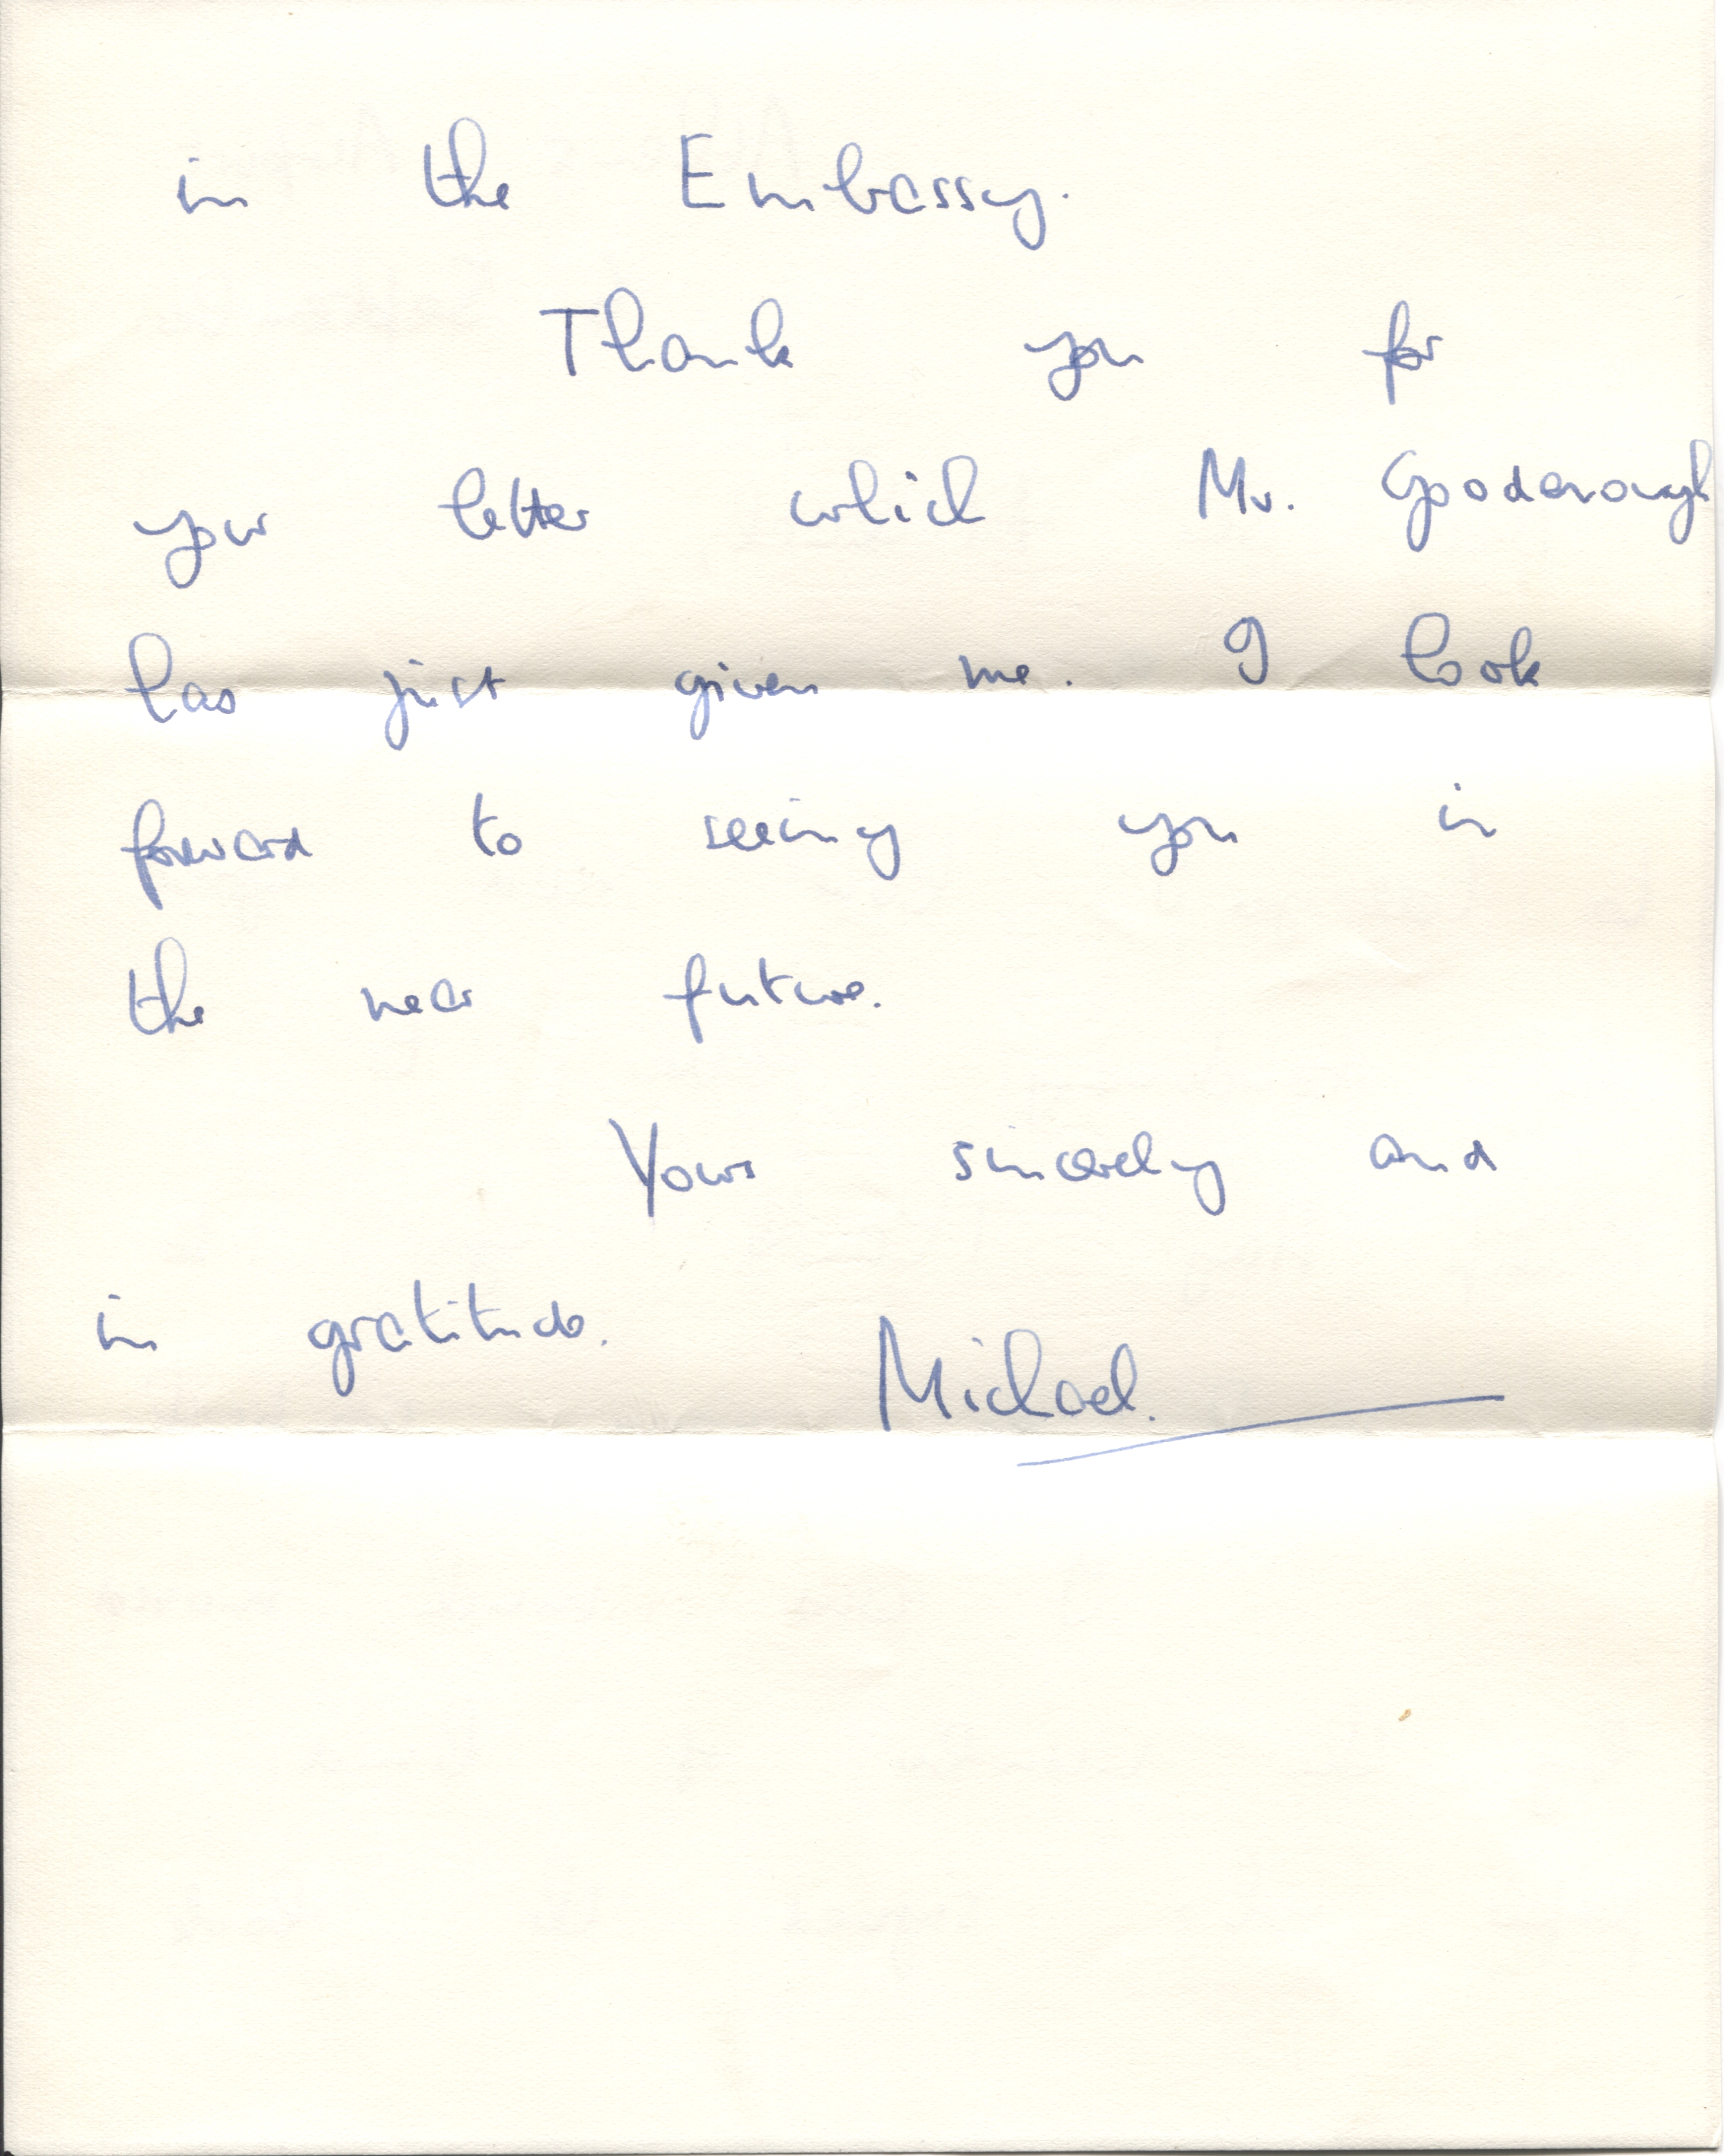 in the Embassy.
Thank you for
your letter which Mr. Gooderough
has just given me. I look
forward to seeing you in
the near future.
Yours sincerely and
in gratitude.
Michael.